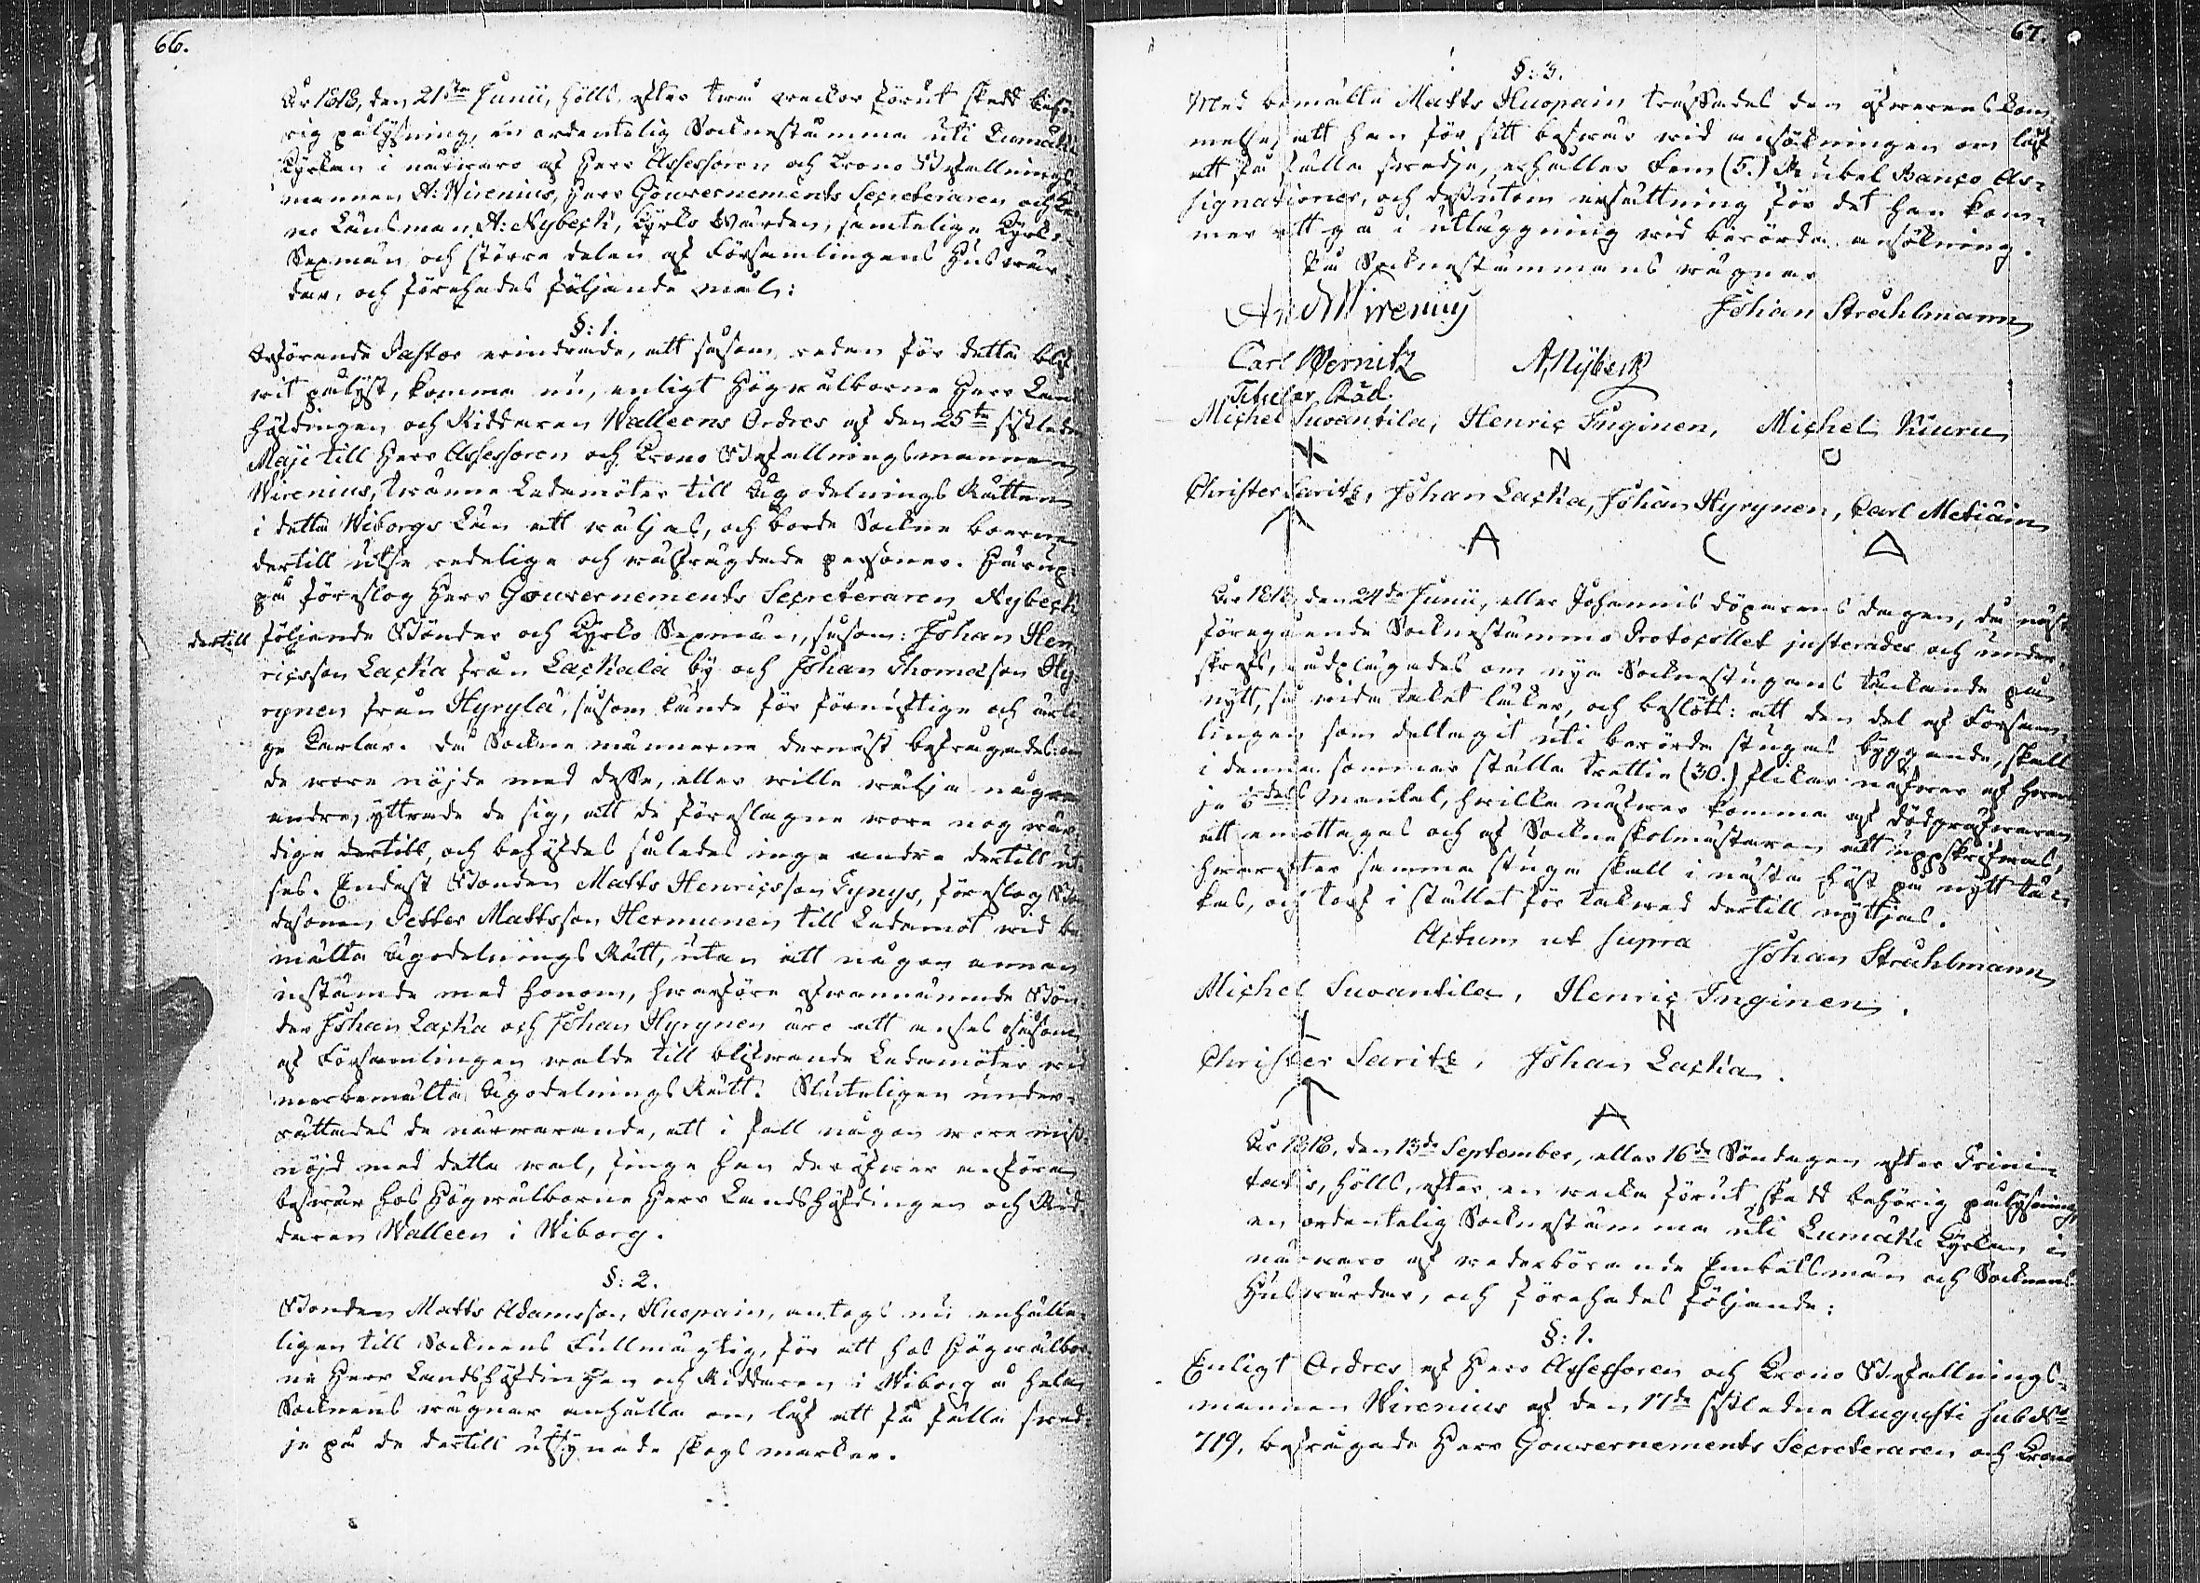 66.
År 1818, den 21sta Junii, hölls, efter två veckor förut skedd behö-
rig pålysning, en ordentelig Sockenstämma uti Lumäki
Kyrkan i närvaro af Herr Assessoren och Krono Befallnings-
mannen A: Wirenius, Herr Gouvernements Secreteraren och Kro-
no Länsman A: Nybeck, Kyrko Värden, samtelige Kyrko-
Sexmän och större delen af Församlingens Husvär-
dar, och förehades följande mål:
§: 1.
Ordförande Pastor erindrade, att såsom redan för detta blif-
vit pålyst, komma nu, enligt Högvälborne Herr Lands
höfdingen och Riddaren Walleens Ordres af den 25te sistledne
Maji till Herr Assessoren och Krono Befallningsmannen
Wirenius, tvänne Ledamöter till Ägodelnings Rätten
i detta Wiborgs Län att väljas, och borde Sockne boerne
dertill utse redelige och välfrägdade personer. Härup-
på föreslog Herr Gouvernements Secreteraren Nybeck
dertill följande Bönder och Kyrko Sexmän, såsom: Johan Hen-
ricsson Lacka från Lackala by och Johan Thomasson Hy-
rynen från Hyrylä, såsom kände för förnuftige och ärli-
ge Karlar. Då Sockne männerne dernäst befrågades om
de vore nöjde med desse, eller ville välja någre
andre, yttrade de sig, att de föreslagne vore nog vär-
dige dertill, och behöfdes således inge andre dertill ut-
ses. Endast Bonden Matts Henricsson Tynys, föreslog Bon-
desonen Petter Mattsson Hermunen till Ledamot vid be-
mälta Ägodelnings Rätt, utan att någon annan
instämde med honom, hvarföre ofvannämnde Bön-
der Johan Lacka och Johan Hyrynen äro att anses såsom
af Församlingen valde till blifvande Ledamöter vid
merbemälta Ägodelnings Rätt. Sluteligen under-
rättades de närvarande, att i fall någon vore miss-
nöjd med detta val, finge han deröfver anföra
besvär hos Högvälborne Herr Landshöfdingen och Rid-
daren Walleen i Wiborg.
§: 2.
Bonden Matts Adamsson Huopain, antogs nu enhälle-
ligen till Socknens Fullmägtig, för att hos Högvälbor-
ne Herr Landshöfdingen och Riddaren i Wiborg å hela
Socknens vägnar anhålla om lof att få fälla sved-
je på de dertill utsynade skogsmarker.
67.
§: 3.
Med bemälta Matts Huopain träffades den öfverenskom-
melse, att han för sitt besvär vid ansökningen om lof
att få fälla svedje, erhåller Fem (5.) Rubel Banco As-
signationer, och dessutom ersättning för det han kom-
mer att ge i utläggning vid berörde ansökning.
På Sockenstämmans vägnar
And Wirenius Johan Strahlmann
Carl Wernitz A, Nybeck
Titulär Råd.
Michel Suvantila, Henric Inginen, Michel Kiuru
X N O
Christer Saritz, Johan Lacka, Johan Hyrynen, Carl Metiäin
A
År 1818, den 24de Junii, eller Johannis döparens dagen, då näst
föregående Sockenstämmo Protocollet justerades och under-
skrefs, rådplägades om nya Sockenstugans täckande på
nytt, så vida taket läcker, och beslöts: att den del af Försam-
lingen som deltagit uti berörde stugas byggande, skall
i denna sommar ställa Trettie (30.) flikar näfver af hvar-
je dels Mantal, hvilka näfver komma af Dödgräfvaren
att emottagas och af Sockneskolmästaren att uppskrifvas,
hvarefter samma stuga skall i nästa höst på nytt täc-
kas, och torf i stället för takved dertill nyttjas.
Actum ut supra Johan Strahlmann
Michel Suvantila, Henric Inginen.
N
Christer Saritz, Johan Lacka.
A
År 1818, den 13de September, eller 16de Söndagen efter Trini-
tatis, hölls, efter en vecka förut skedd behörig pålysning,
en ordentelig Sockenstämma uti Lumäki Kyrkan i
närvaro af vederbörande Embetsmän och Socknens
Husvärdar, och förehades följande:
§: 1.
Enligt Ordres af Herr Assessoren och Krono Befallnings-
mannen Wirenius af den 17de sistledne Augusti sub No
719, befrågade Herr Gouvernements Secreteraren och Krono